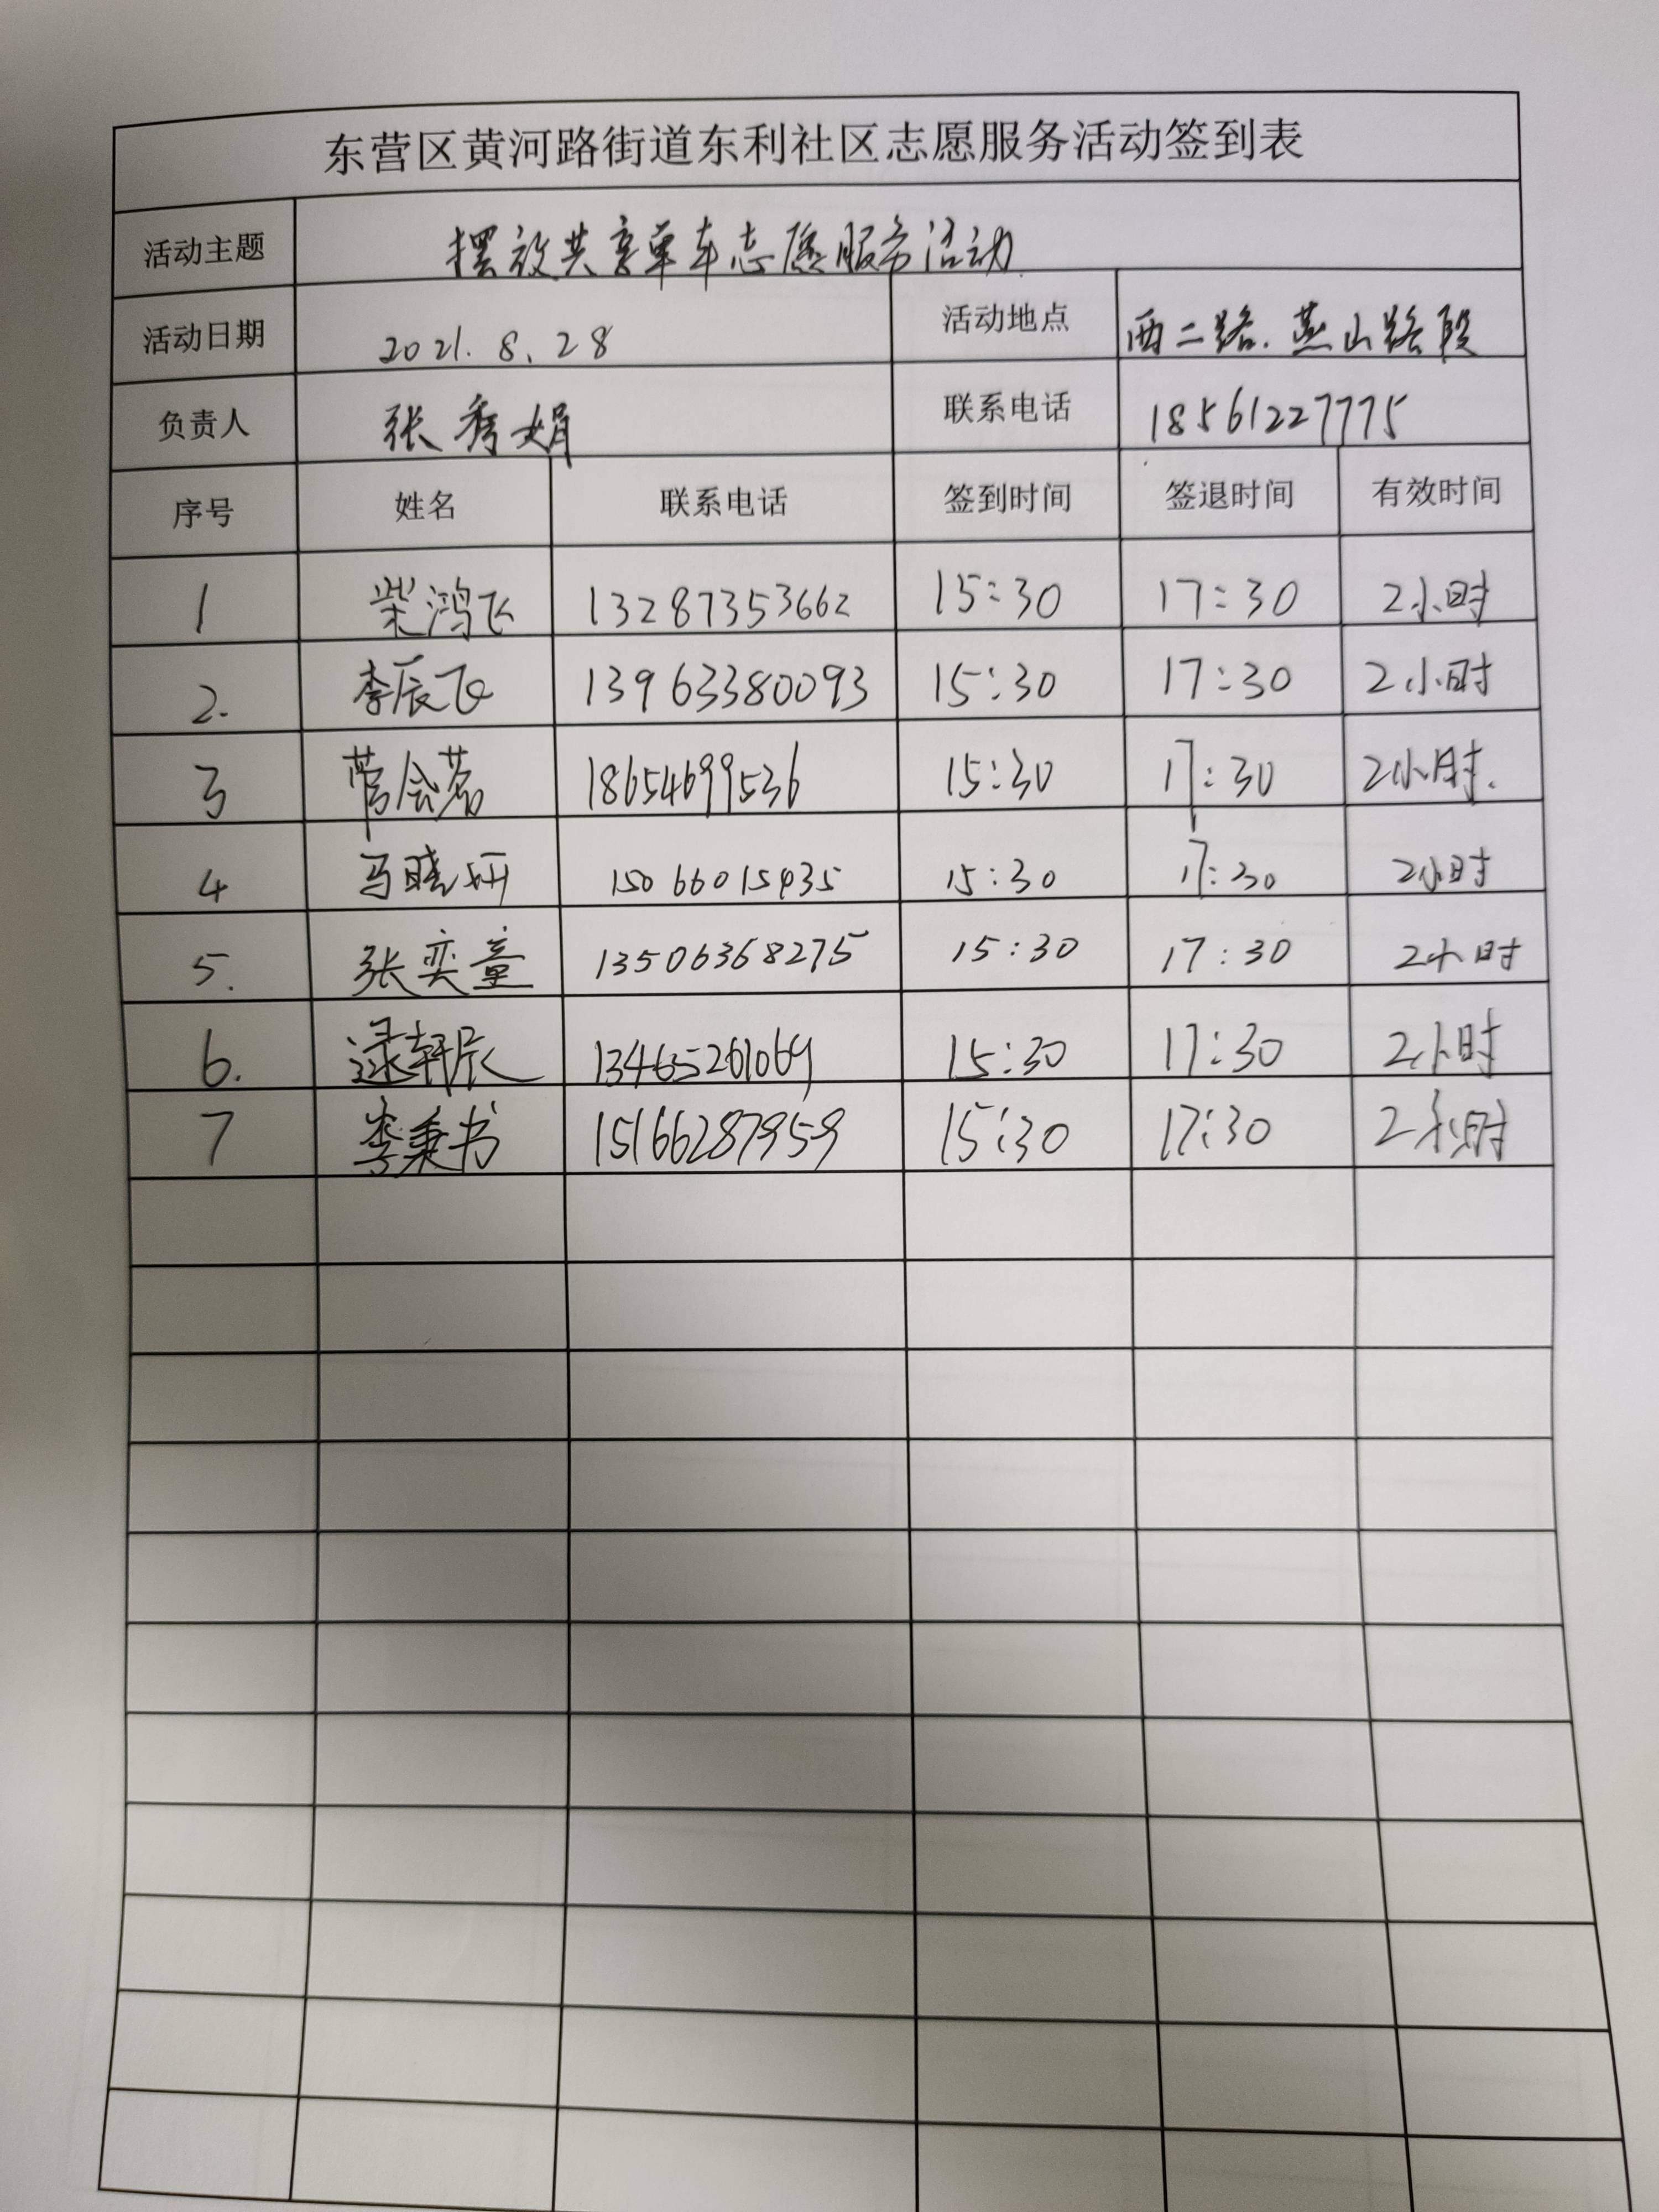 东营区黄河路街道东利社区志愿服务活动签到表
活动主题 摆放共享单车志愿服务活动
活动日期 2021.8.28 活动地点 西二路.燕山路段
负责人 张秀娟 联系电话 18561227775
序号 姓名 联系电话 签到时间 签退时间 有效时间
1 柴鸿飞 13287353662 15:30 17:30 2小时
2. 李辰飞 13963380093 15:30 17:30 2小时
3 18654699536 15:30 17:30 2小时.
4 马晓妍 15066015435 15:30 17:30 2小时
5. 张奕童 13506368275 15:30 17:30 2小时
6. 逯轩辰 13465261069 15:30 17:30 2小时
7 李秉书 15166287959 15:30 17:30 2小时